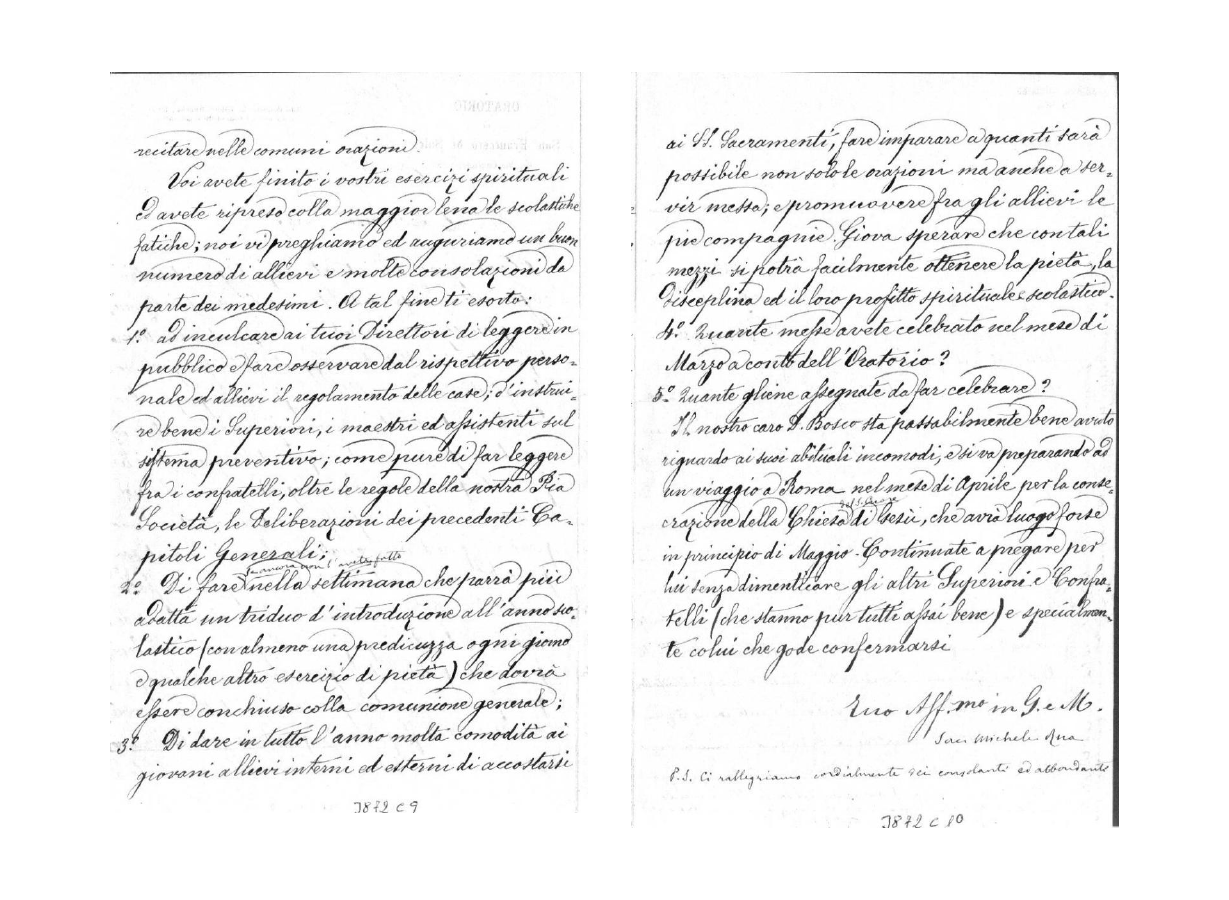 recitare nelle comuni orazioni.
Voi avete finito i vostri esercizi spirituali
ed avete ripreso colla maggior lena le scolastiche
fatiche; noi vi preghiamo ed auguriamo un buon
numero di allievi e molte consolazioni da
parte dei medesimi. A tal fine ti esorto:
1.º ad inculcare ai tuoi Direttori di leggere in
pubblico e fare osservare dal rispettivo perso-
nale ed allievi il regolamento delle case; d'instrui-
re bene i Superiori, i maestri ed assistenti sul
sistema preventivo; come pure di far leggere
fra i confratelli, oltre le regole della nostra Pia
Società, le Deliberazioni dei precedenti Ca-
pitoli Generali;
se ancora non l'avete fatto
2º Di fare nella settimana che parrà più
adatta un triduo d'introduzione all'anno sco-
lastico (con almeno una predicuzza ogni giorno
e qualche altro esercizio di pietà) che dovrà
essere conchiuso colla comunione generale;
3.º Di dare in tutto l'anno molta comodità ai
giovani allievi interni ed esterni di accostarsi
3872 C 9
ai SS. Sacramenti, fare imparare a quanti sarà
possibile non solo le orazioni ma anche a ser-
vir messa; e promuovere fra gli allievi le
pie compagnie. Giova sperare che con tali
mezzi si potrà facilmente ottenere la pietà, la
disceplina ed il loro profitto spirituale e scolastico.
4.º Quante messe avete celebrato nel mese di
Marzo a conto dell'Oratorio?
5º Quante gliene assegnate da far celebrare?
Il nostro caro D. Bosco sta passabilmente bene avuto
riguardo ai suoi abituali incomodi, e si va preparando ad
un viaggio a Roma nel mese di Aprile per la conse-
del S. Cuore
crazione della Chiesa di Gesù, che avrà luogo forse
in principio di Maggio. Continuate a pregare per
lui senza dimenticare gli altri Superiori e Confra-
telli (che stanno pur tutti assai bene) e specialmen-
te colui che gode confermarsi
Tuo Aff.mo in G. e M.
Sac. Michele Rua
P.S. Ci rallegriamo cordialmente dei consolanti ed abbondanti
3872 C 10